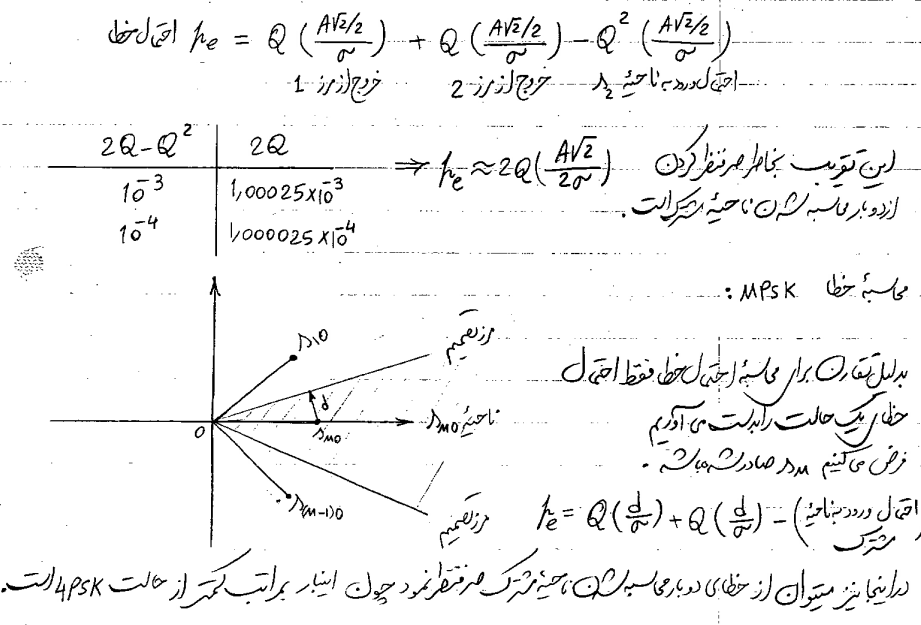 احتمال خطا Pe = Q (A√2/2 / σ) + Q (A√2/2 / σ) - Q² (A√2/2 / σ)
خروج از مرز 1 خروج از مرز 2 احتمال ورود به ناحیهٔ s₂
2Q-Q² 2Q
10⁻³ 1,00025x10⁻³
10⁻⁴ 1,000025x10⁻⁴
⇒ Pe ≈ 2Q(A√2 / 2σ)
این تقریب بخاطر صرفنظر کردن
از دوبار محاسبه شدن ناحیهٔ مشترک است .
محاسبهٔ خطا MPSK :
s₁₀
مرز تصمیم
d
0
s_M0
ناحیهٔ s_M0
s_(M-1)0
مرز تصمیم
بدلیل تقارن برای محاسبهٔ احتمال خطا فقط احتمال
خطای یک حالت را بدست می آوریم
فرض می کنیم s_M صادر شده باشد .
Pe = Q(d/σ) + Q(d/σ) - (احتمال ورود به ناحیهٔ مشترک)
در اینجا نیز میتوان از خطای دوبار محاسبه شدن ناحیهٔ مشترک صرفنظر نمود چون اینبار بمراتب کمتر از حالت 4PSK است.